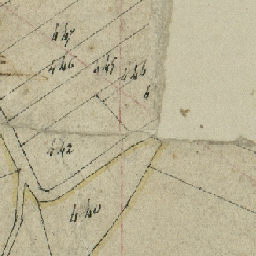 447
446 445 446
6
442
440